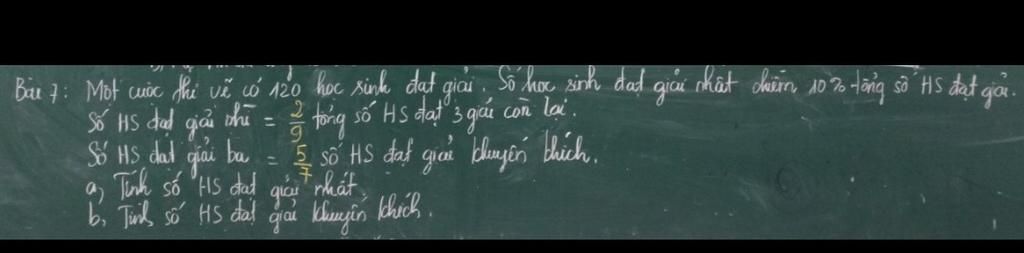 Bài 7: Một cuộc thi vẽ có 120 học sinh đạt giải. Số học sinh đạt giải nhất chiếm 10% tổng số HS đạt giải.
Số HS đạt giải nhì = 2/9 tổng số HS đạt 3 giải còn lại.
Số HS đạt giải ba = 5/7 số HS đạt giải khuyến khích.
a, Tính số HS đạt giải nhất.
b, Tính số HS đạt giải khuyến khích.